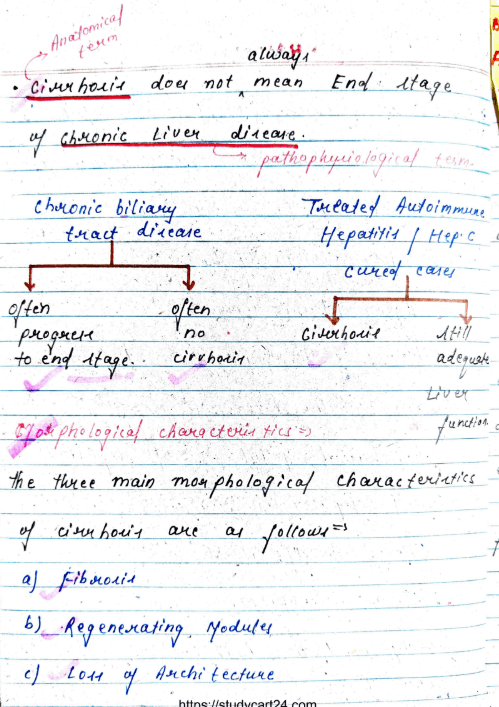 Anatomical
term
always
• Cirrhosis does not ^ mean End stage
of Chronic Liver disease.
pathophysiological term
Chronic biliary
tract disease
Treated Autoimmune
Hepatitis / Hep. C
cured cases
often
progress
to end stage..
often
no
cirrhosis
Cirrhosis
still
adequate
Liver
function.
Morphological characteristics ⇒
The three main morphological characteristics
of cirrhosis are as follows ⇒
a) Fibrosis
b) Regenerating Nodules
c) Loss of Architecture
https://studycart24.com